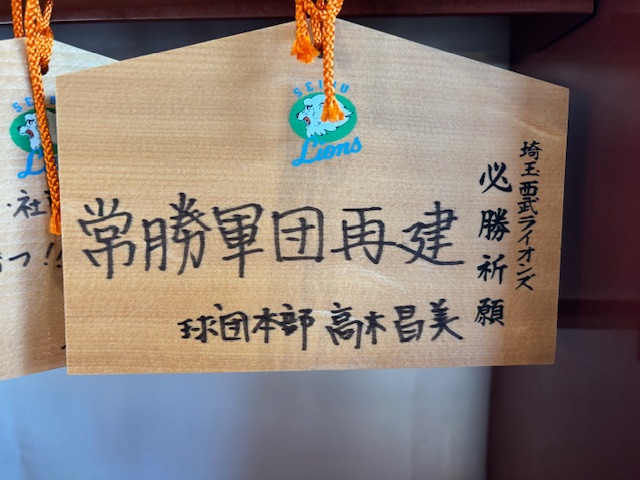 SEIBU
Lions
埼玉西武ライオンズ
必勝祈願
常勝軍団再建
球団本部 高木昌美
・社
つ!!